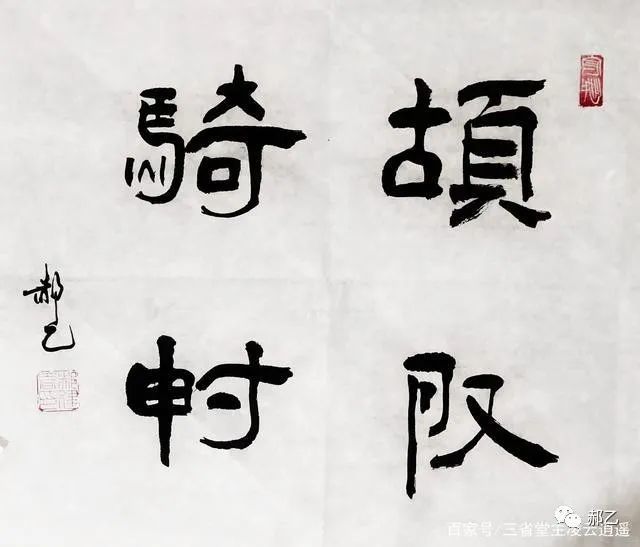 胡服
騎射
郝乙
郝乙
百家号/三省堂主凌云逍遥